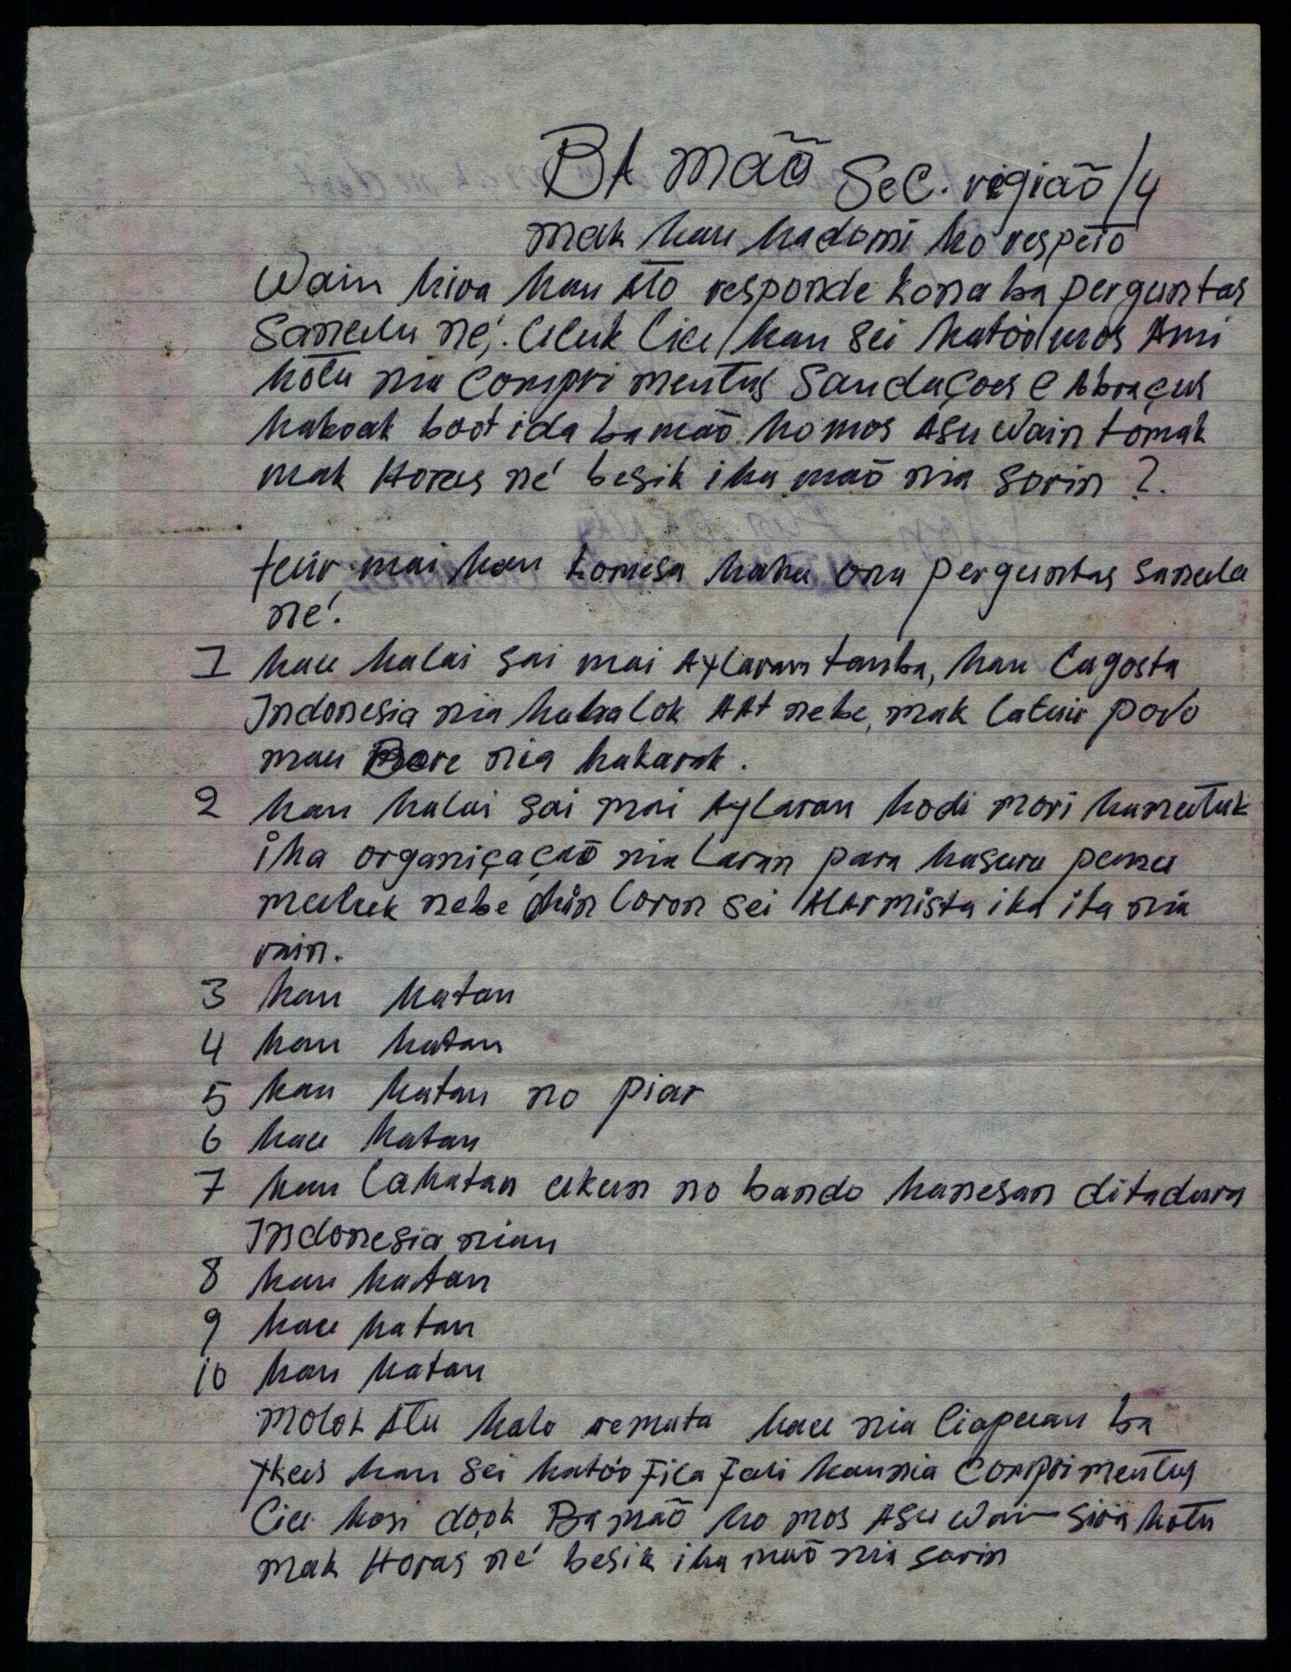 BA maõ Sec. rigiaõ/4
mak hau hadomi ho respeto
Wain hira hau Ato responde kona ba perguntas
Sanulu né, uluk liu/hau sei hatóo mos Ami
hotu nia comprimentus Saudaçoes e Abraçus
hakoak boot ida ba maõ ho mos Asu Wain tomak
mak Horas né besik iha maõ nia sorin ?.
tuir mai hau komesa hahu ona perguntas sanulu
né.
1 hau halai sai mai Aylaran tamba, hau lagosta
Indonesia nia hahalok AAt nebe, mak latuir povo
mau Bere nia hakarak.
2 hau halai sai mai Aylaran hodi mori hamutuk
iha organiçaçaõ nia laran para hasuru funu
maluk nebe loron sei Alarmista iha ita nia
rain.
3 hau hatan
4 hau hatan
5 hau hatan no piar
6 hau hatan
7 hau lahatan ukun no bando hanesan ditadura
Indonesia nian
8 hau hatan
9 hau hatan
10 hau hatan
Molok Atu halo remata hau nia liafuan ba
hau sei hatóo fila fali hau nia comprimentus
liu hosi dook Ba maõ ho mos Asu Wain sira hotu
mak Horas né besik iha maõ nia sorin